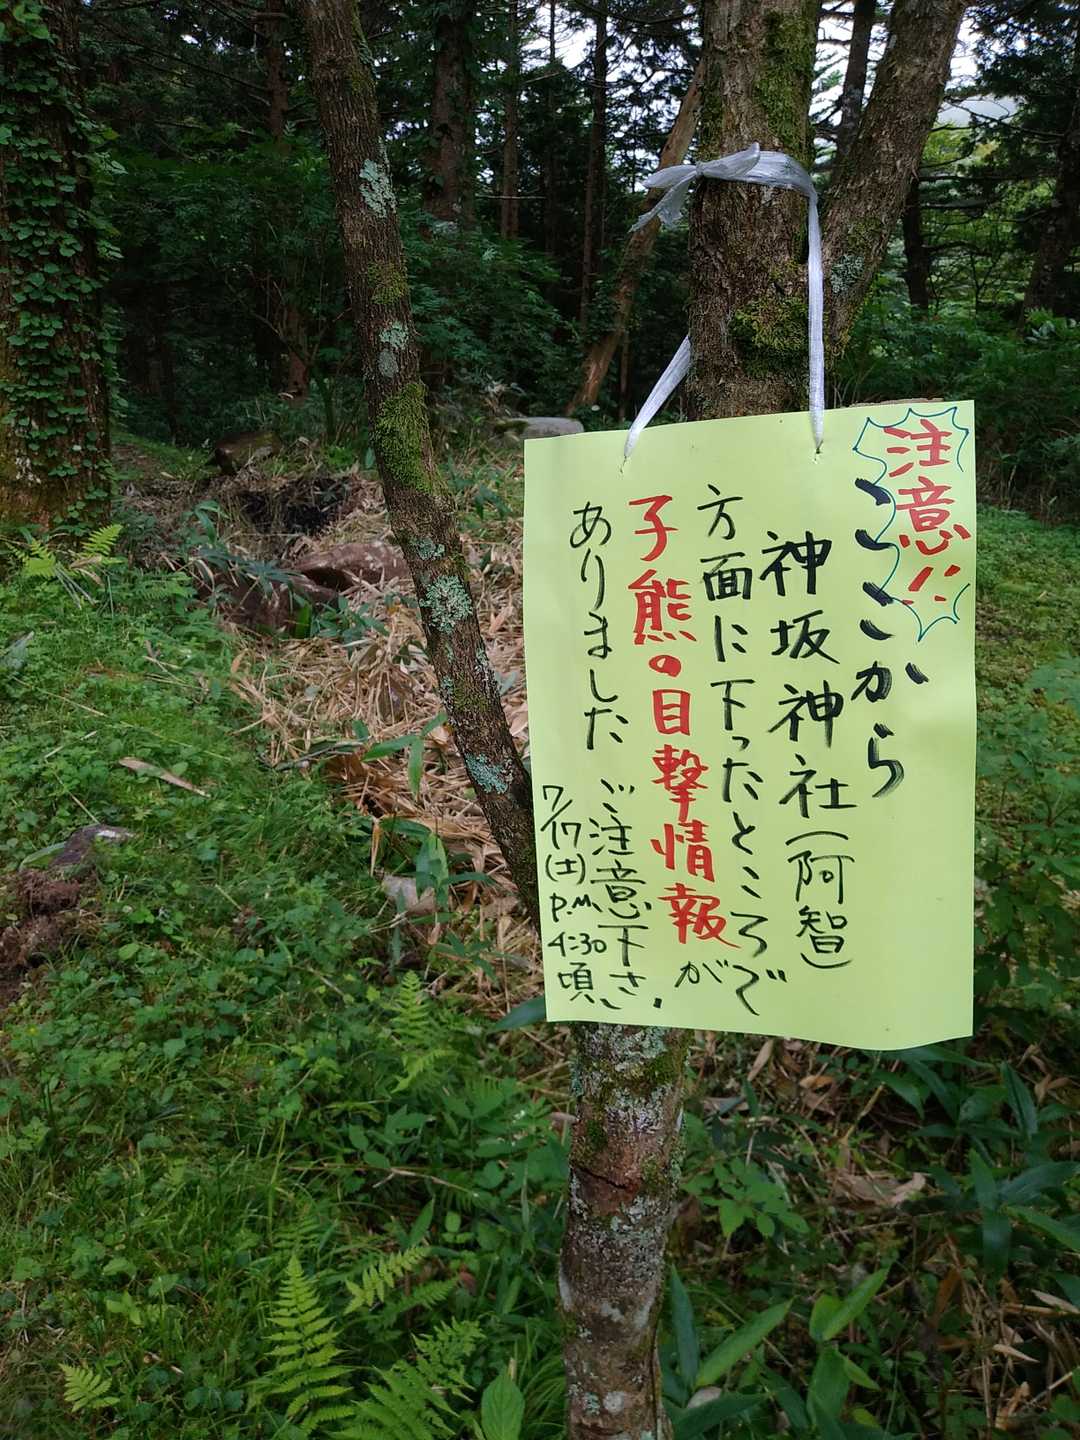 注意!!
ここから
神坂神社(阿智)
方面に下ったところで
子熊の目撃情報が
ありました ご注意下さい.
7/17(土)P.M.4:30頃